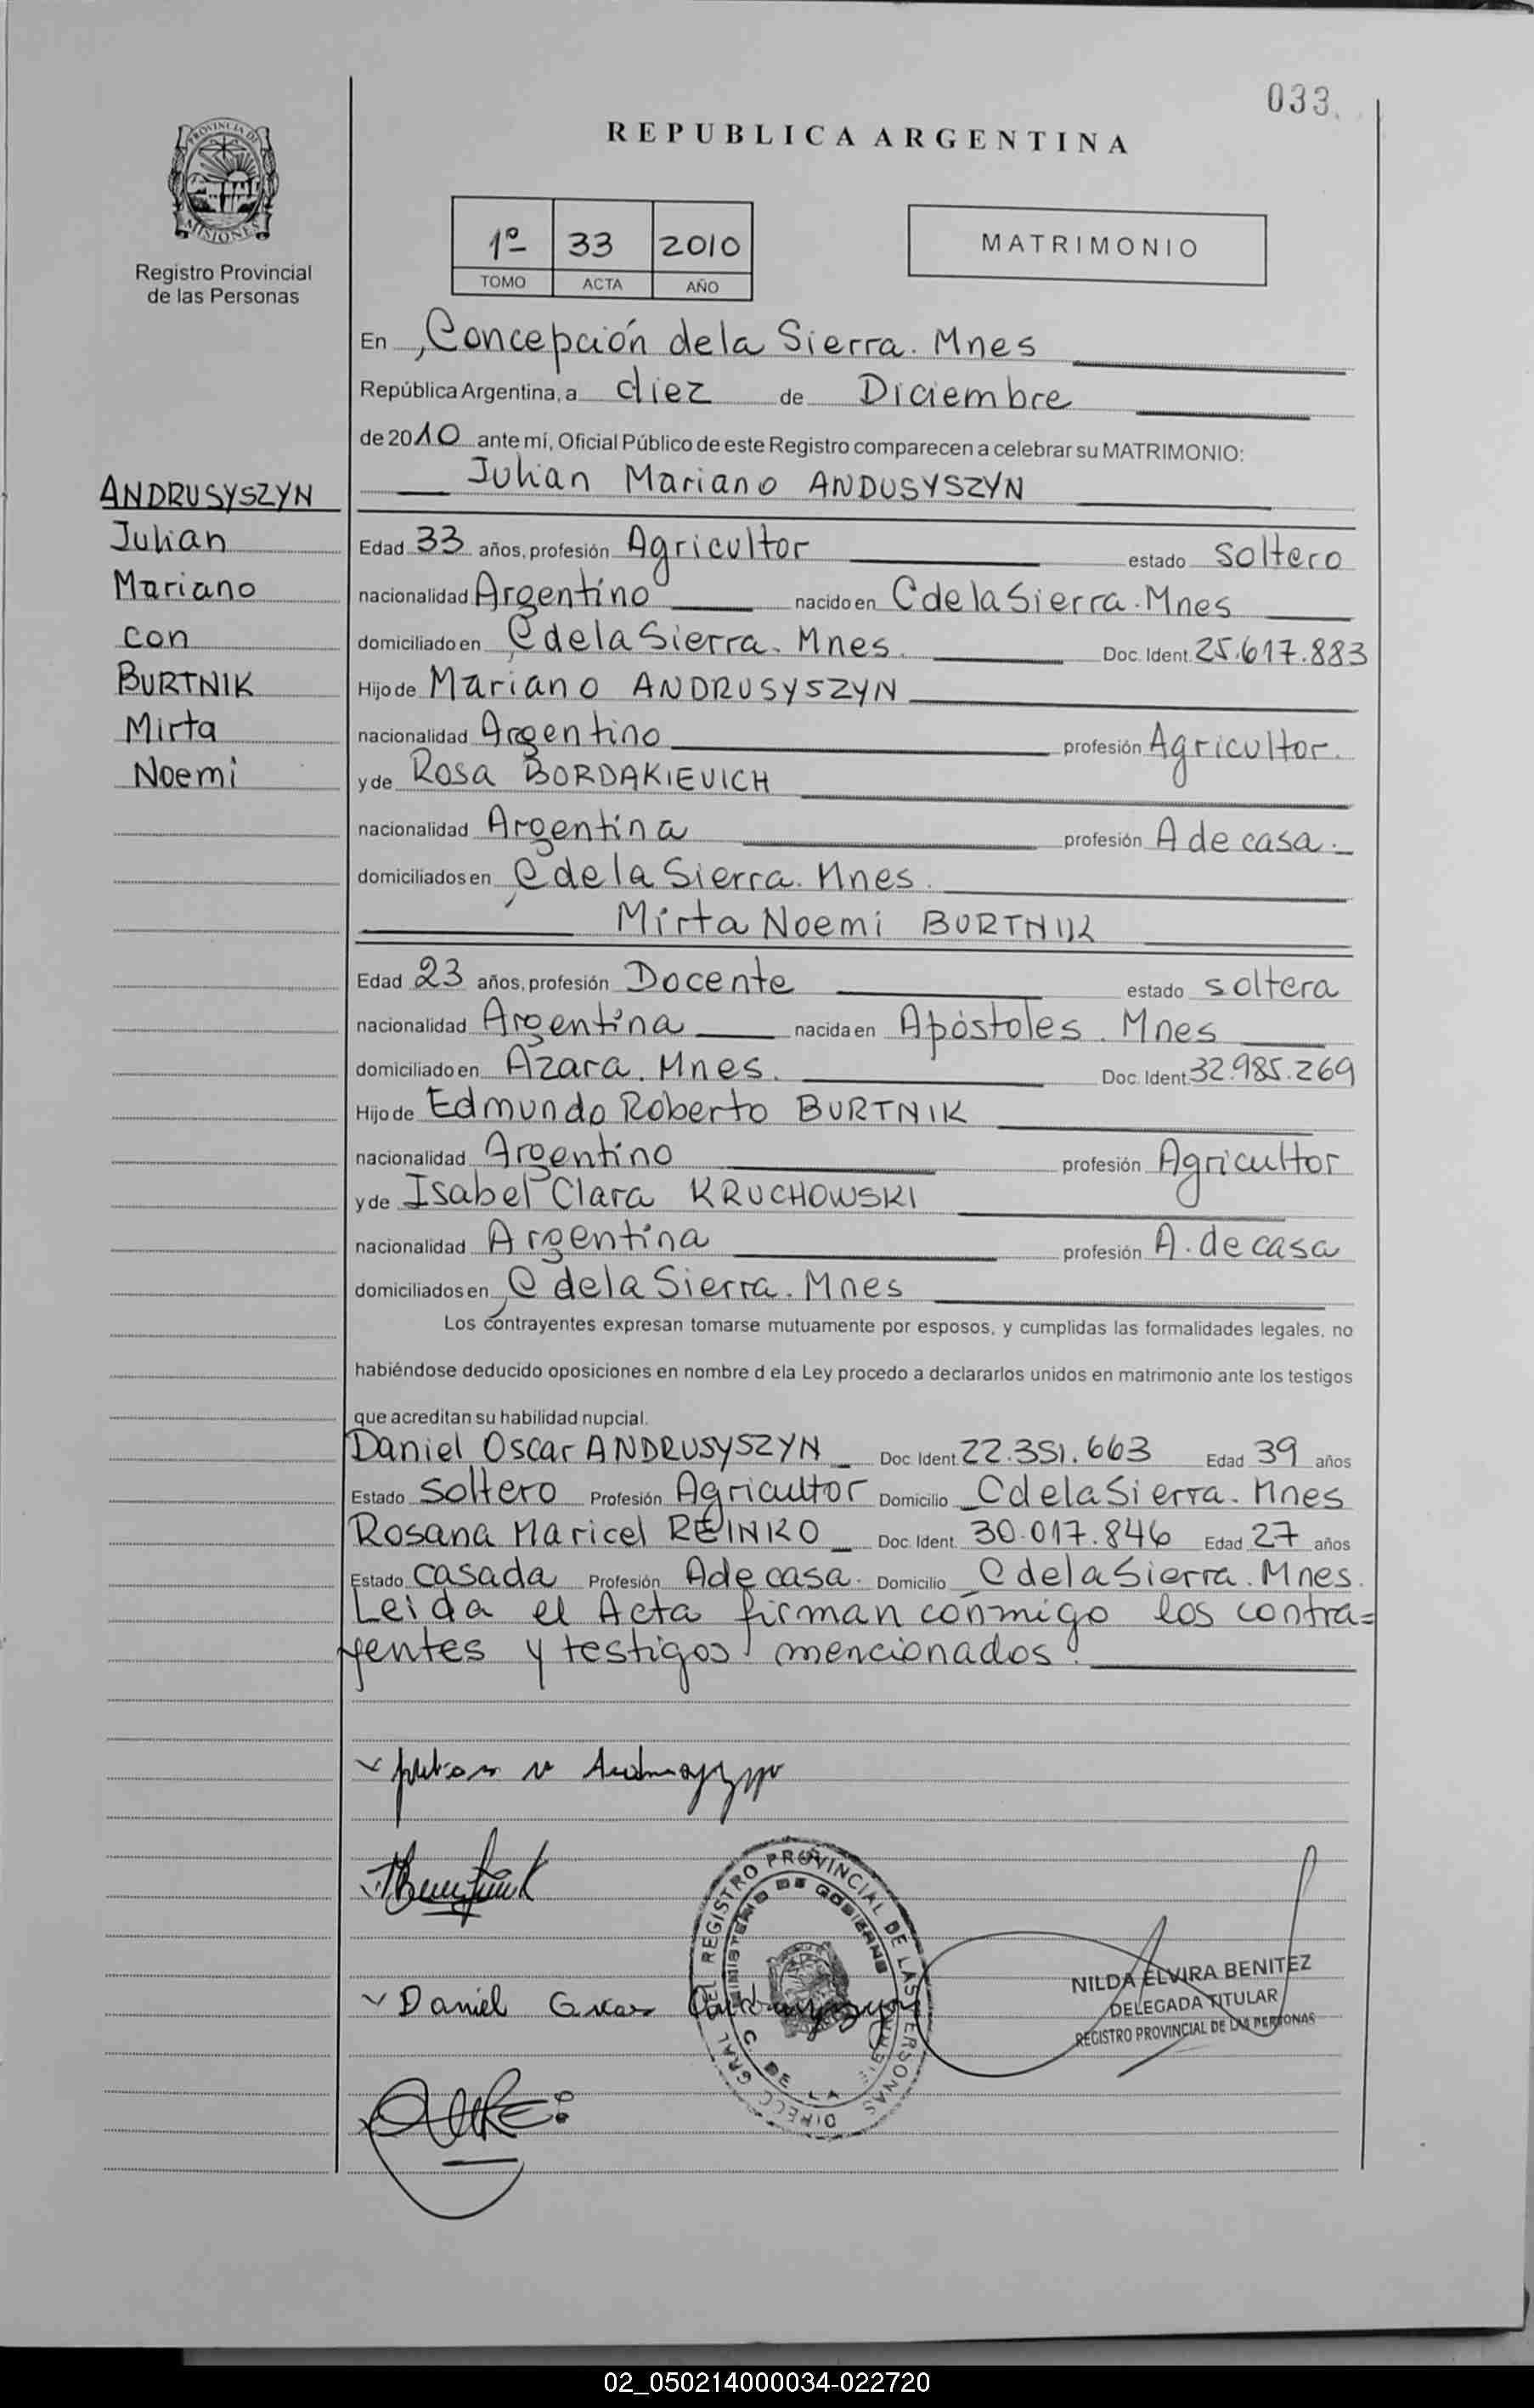 033
REPUBLICA ARGENTINA
PROVINCIA DE
MISIONES
Registro Provincial
de las Personas
1º 33 2010
TOMO ACTA AÑO
MATRIMONIO
En Concepción de la Sierra. Mnes
República Argentina, a diez de Diciembre
de 2010 ante mí, Oficial Público de este Registro comparecen a celebrar su MATRIMONIO:
Julian Mariano ANDUSYSZYN
ANDRUSYSZYN
Julian
Mariano
con
BURTNIK
Mirta
Noemi
Edad 33 años, profesión Agricultor estado soltero
nacionalidad Argentino nacido en C de la Sierra. Mnes
domiciliado en C de la Sierra. Mnes. Doc. Ident. 25.617.883
Hijo de Mariano ANDRUSYSZYN
nacionalidad Argentino profesión Agricultor.
y de Rosa BORDAKIEVICH
nacionalidad Argentina profesión A de casa.
domiciliados en C de la Sierra. Mnes.
Mirta Noemi BURTNIK
Edad 23 años, profesión Docente estado soltera
nacionalidad Argentina nacida en Apóstoles. Mnes
domiciliado en Azara. Mnes. Doc. Ident. 32.985.269
Hijo de Edmundo Roberto BURTNIK
nacionalidad Argentino profesión Agricultor
y de Isabel Clara KRUCHOWSKI
nacionalidad Argentina profesión A. de casa
domiciliados en C de la Sierra. Mnes
Los contrayentes expresan tomarse mutuamente por esposos, y cumplidas las formalidades legales, no
habiéndose deducido oposiciones en nombre d ela Ley procedo a declararlos unidos en matrimonio ante los testigos
que acreditan su habilidad nupcial.
Daniel Oscar ANDRUSYSZYN Doc. Ident. 22.351.663 Edad 39 años
Estado soltero Profesión Agricultor Domicilio C de la Sierra. Mnes
Rosana Maricel REINKO Doc. Ident. 30.017.846 Edad 27 años
Estado casada Profesión A de casa. Domicilio C de la Sierra. Mnes.
Leida el Acta firman conmigo los contra=
yentes y testigos mencionados.
Daniel Oscar
DIRECC. GRAL. DEL REGISTRO PROVINCIAL DE LAS PERSONAS
MINISTERIO DE GOBIERNO
C. DE LA SIERRA
NILDA ELVIRA BENITEZ
DELEGADA TITULAR
REGISTRO PROVINCIAL DE LAS PERSONAS
02_050214000034-022720